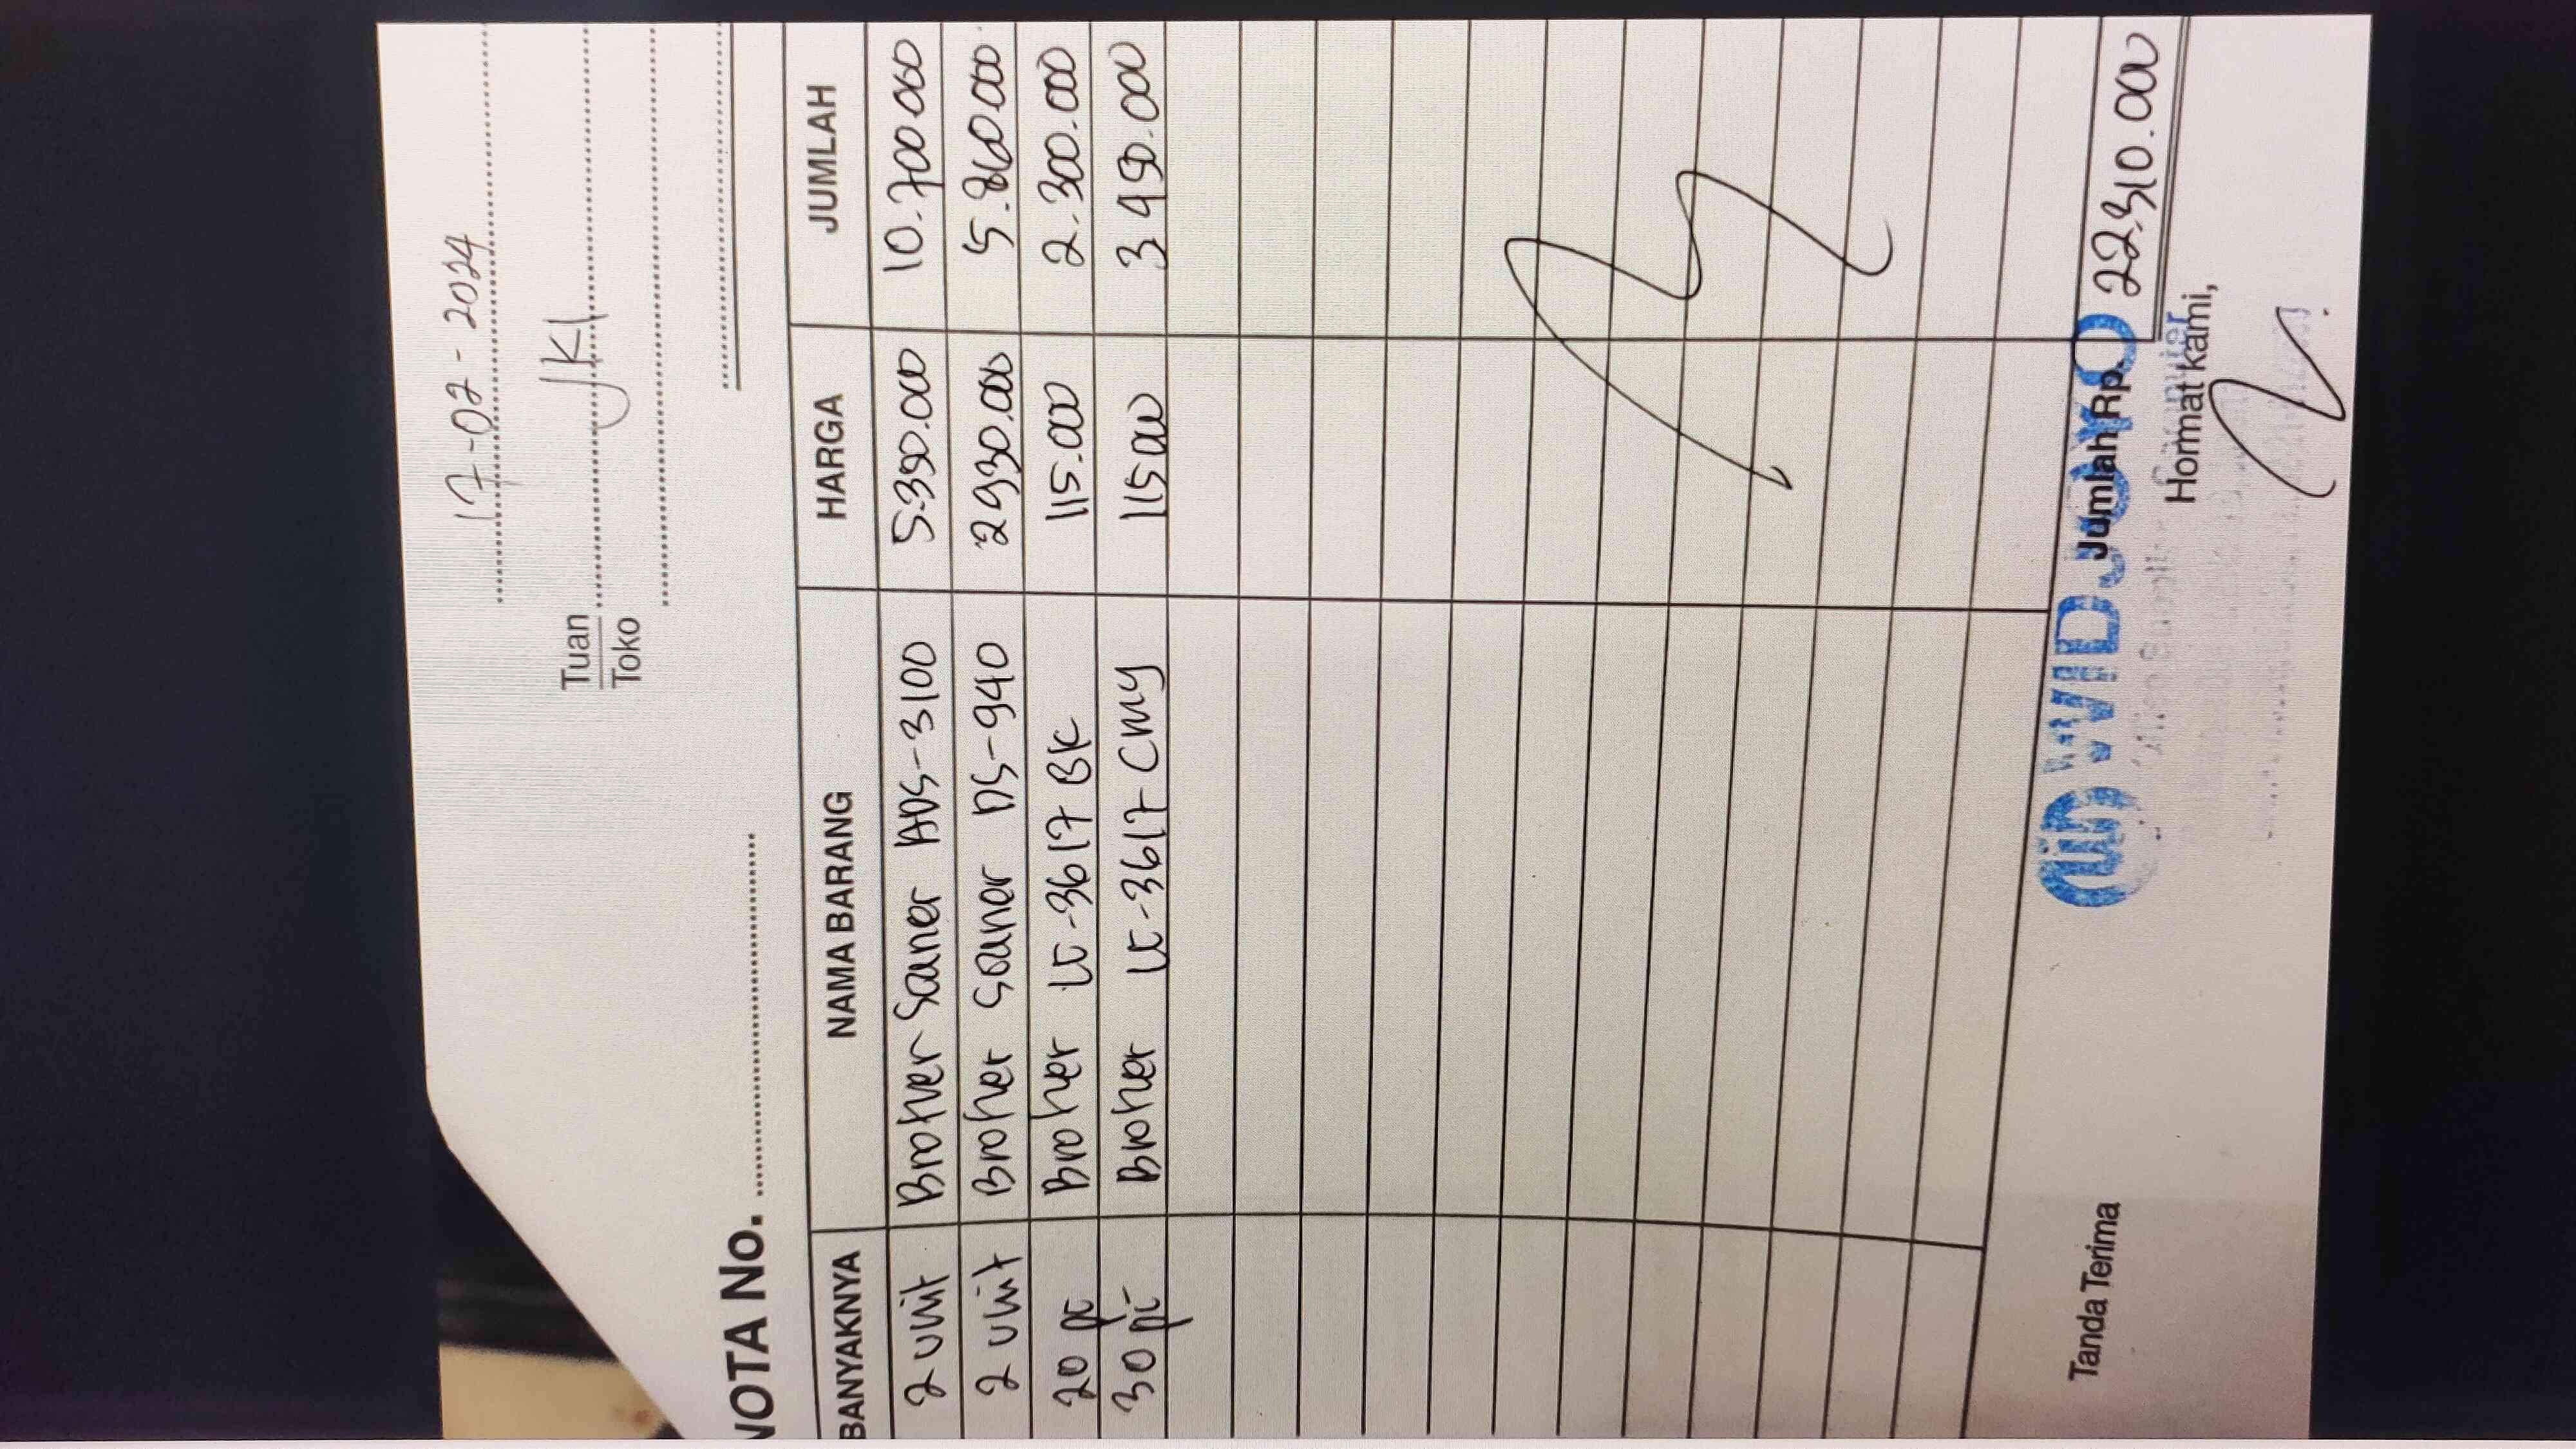 17-02-2024
Tuan JKI
Toko
NOTA No.
BANYAKNYA NAMA BARANG HARGA JUMLAH
2 unit Broher Saner ADS-3100 5.350.000 10.700.000
2 unit Broher Saner DS-940 2930.000 5.860.000
20 pc Broher LC-3617 BK 115.000 2.300.000
30 pc Broher LC-3617 CMY 115000 3.450.000
Jumlah Rp. 22.310.000
WIDJOYO
Tanda Terima Hormat kami,